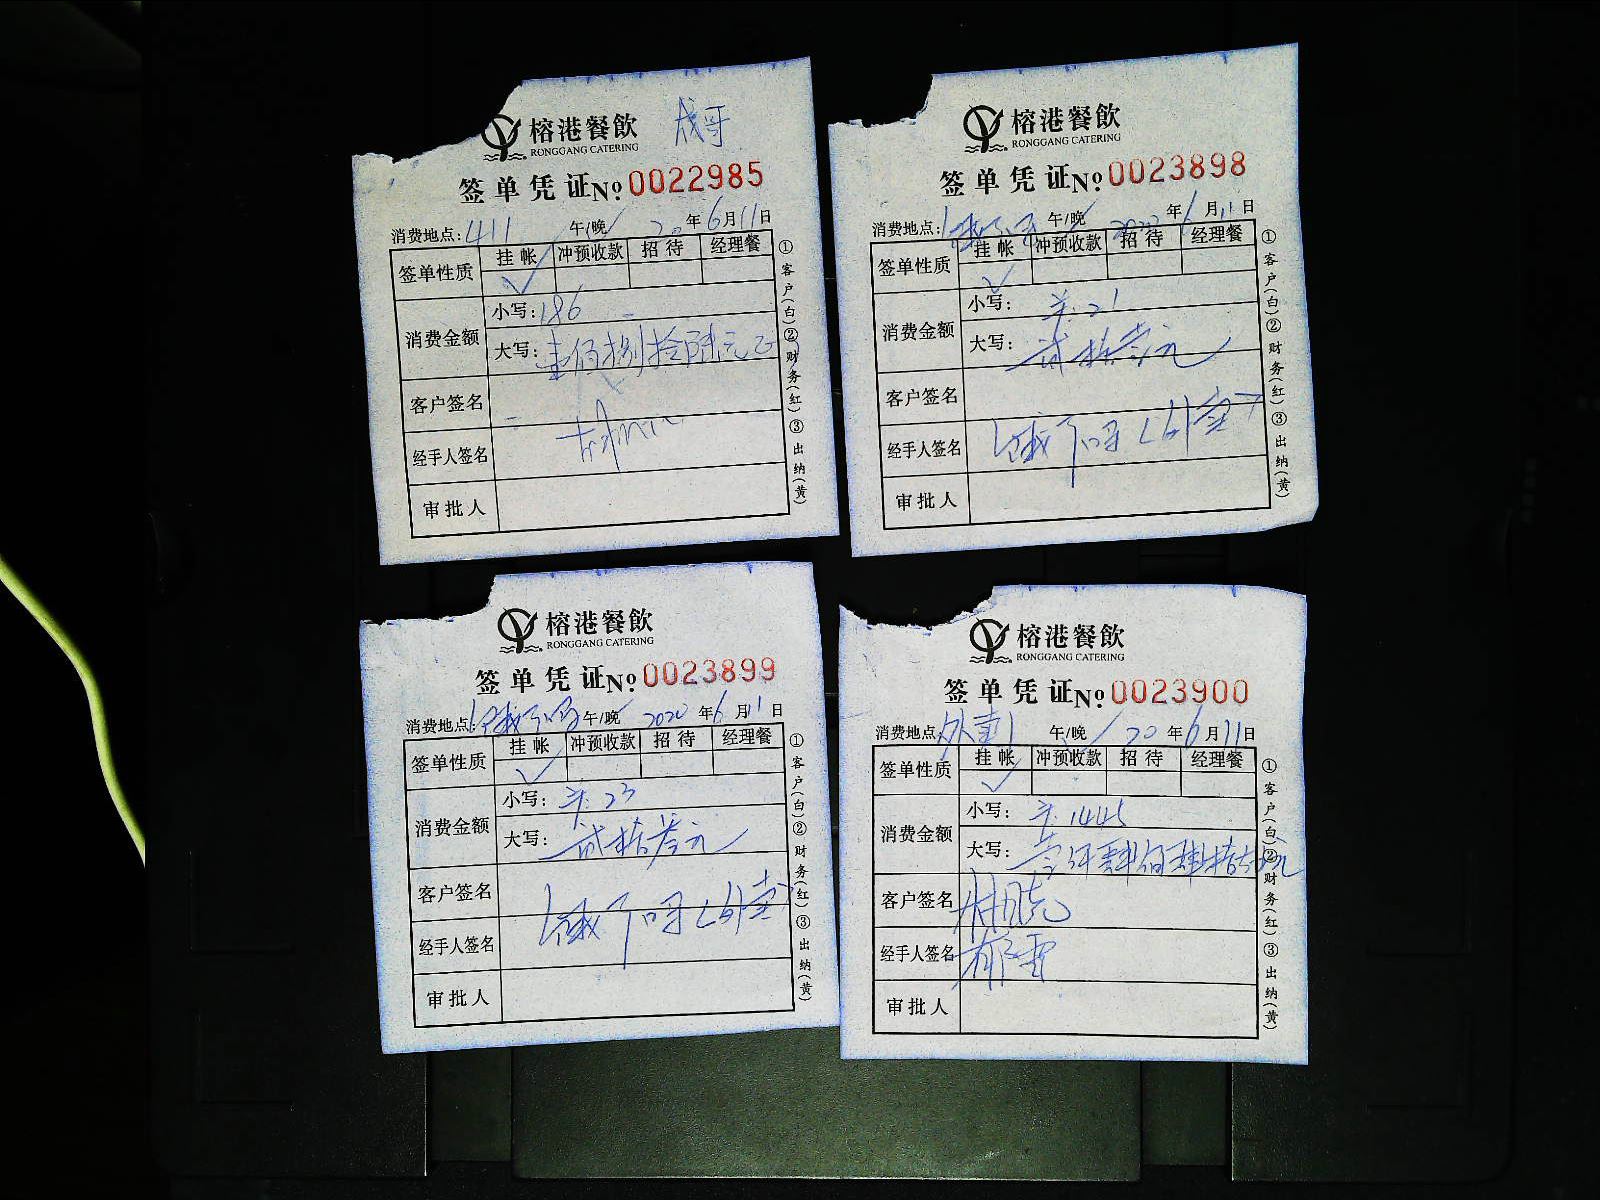 榕港餐飲 成哥
RONGGANG CATERING
签单凭证 No 0022985
消费地点: 411 午/晚 20 年 6 月 11 日
签单性质 挂帐 冲预收款 招待 经理餐
✓
消费金额 小写: 186
大写: 壹佰捌拾陆元正
客户签名
经手人签名
审批人
①客户(白)②财务(红)③出纳(黄)
榕港餐飲
RONGGANG CATERING
签单凭证 No 0023898
消费地点: 饿了吗 午/晚 2020 年 6 月 11 日
签单性质 挂帐 冲预收款 招待 经理餐
✓
消费金额 小写: 21
大写: 贰拾壹元
客户签名
经手人签名 饿了吗(外卖)
审批人
①客户(白)②财务(红)③出纳(黄)
榕港餐飲
RONGGANG CATERING
签单凭证 No 0023899
消费地点: 饿了吗 午/晚 2020 年 6 月 11 日
签单性质 挂帐 冲预收款 招待 经理餐
✓
消费金额 小写: 23
大写: 贰拾叁元
客户签名
饿了吗(外卖)
经手人签名
审批人
①客户(白)②财务(红)③出纳(黄)
榕港餐飲
RONGGANG CATERING
签单凭证 No 0023900
消费地点: 外卖 午/晚 20 年 6 月 11 日
签单性质 挂帐 冲预收款 招待 经理餐
✓
消费金额 小写: 1445
大写: 壹仟肆佰肆拾伍元
客户签名
经手人签名 郁雪
审批人
①客户(白)②财务(红)③出纳(黄)